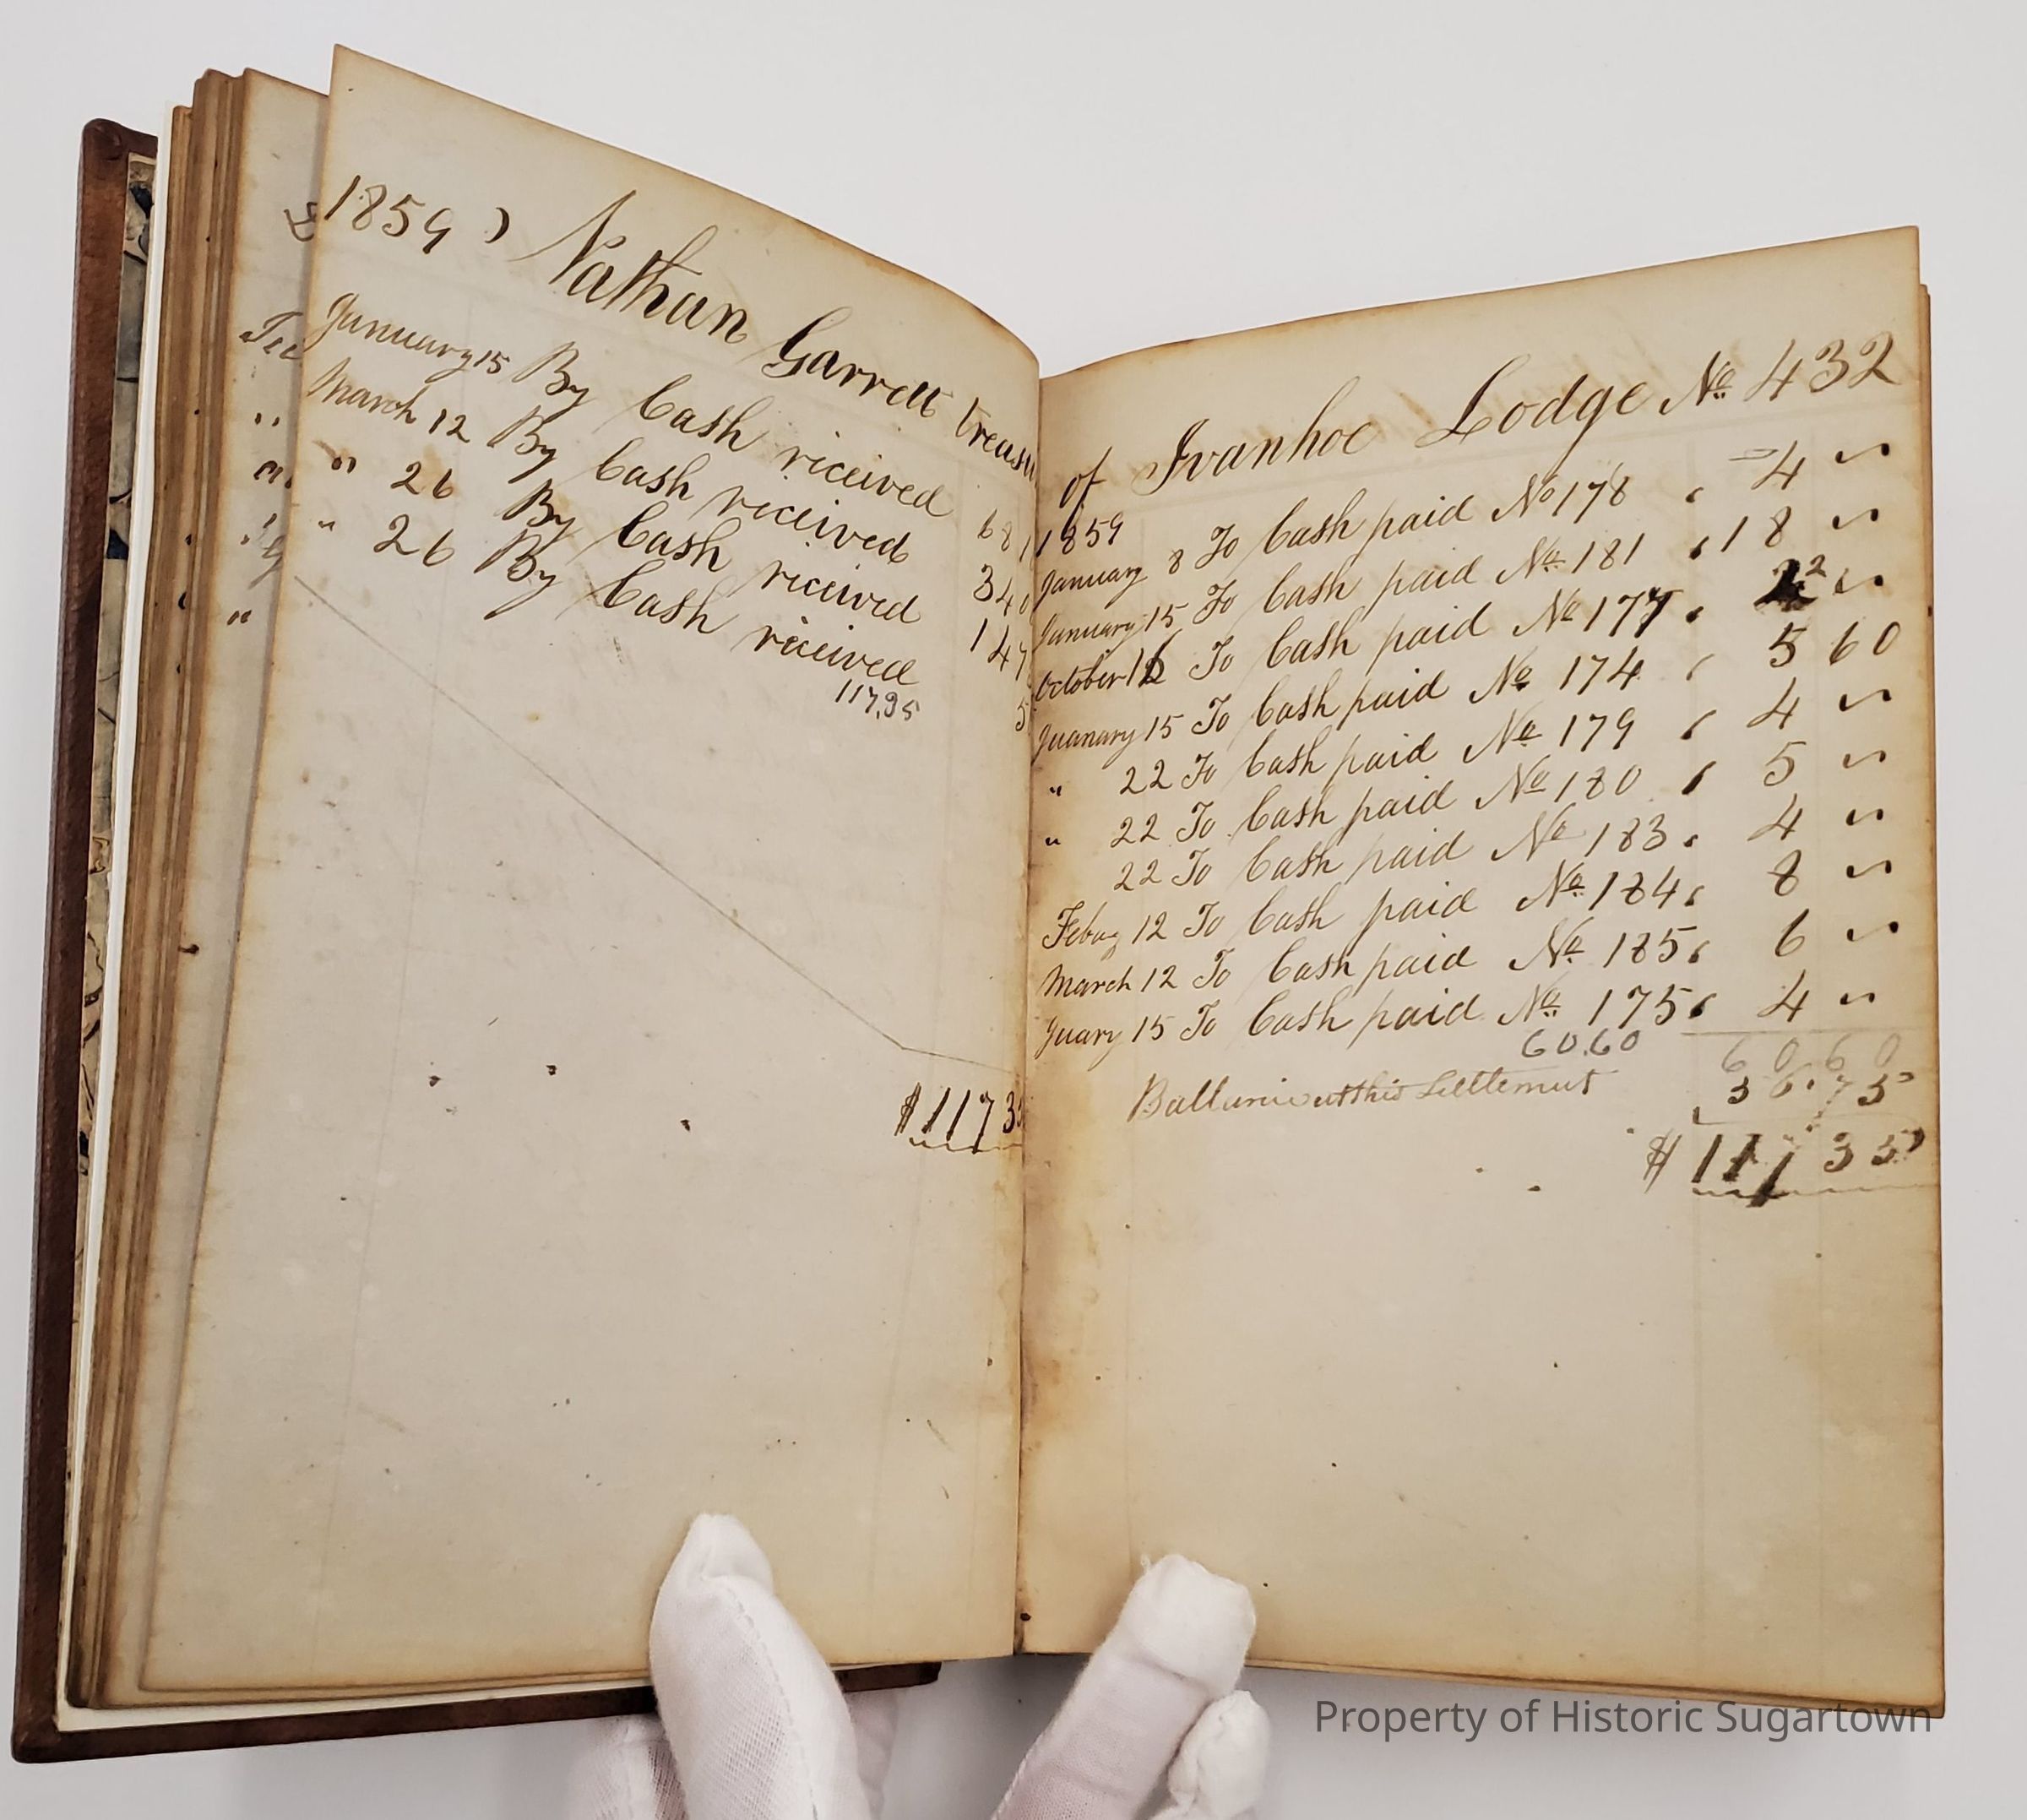 1859 Nathan Garrett treasu
January 15 By Cash riceived 68
March 12 By Cash riceived 34
" 26 By Cash riceived 147
" 26 By Cash riceived 5
117.95
$ 117 3
of Ivanhoe Lodge No 432
1859
January 8 To Cash paid No 178 4
January 15 To Cash paid No 181 18
October 16 To Cash paid No 177 2
Juanary 15 To Cash paid No 174 5 60
" 22 To Cash paid No 179 4
" 22 To Cash paid No 180 5
22 To Cash paid No 183 4
Febuy 12 To Cash paid No 184 8
March 12 To Cash paid No 185 6
Juary 15 To Cash paid No 175 4
60.60 60.60
Ballance at this Settlemut 56.75
$ 117 35
Property of Historic Sugartown